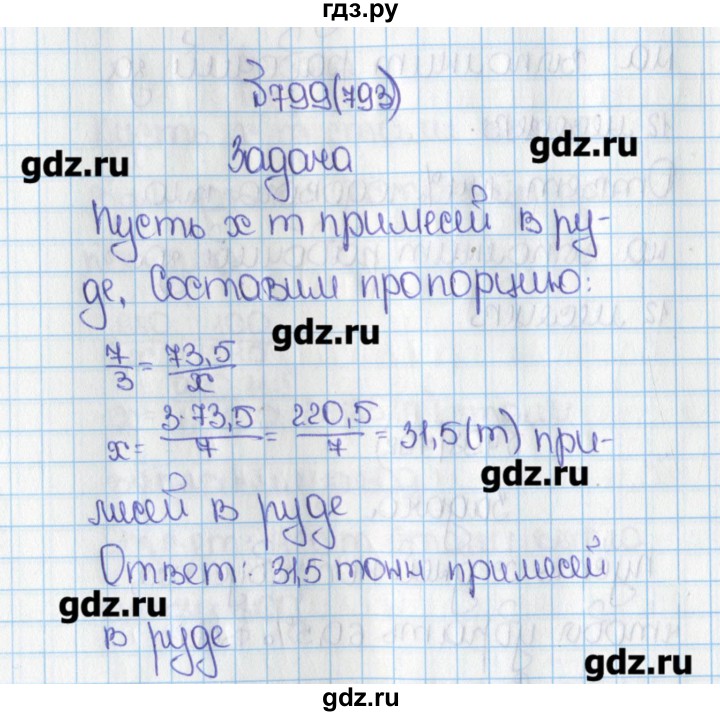 гдз.ру
З 799(793)
gdz.ru
gdz.ru
Задача
Пусть x т примесей в ру-
де. Составим пропорцию:
gdz.ru
7/3 = 73,5/x
x = 3·73,5/7 = 220,5/7 = 31,5(т) при-
gdz.ru
месей в руде
Ответ: 31,5 тонн примесей
gdz.ru
в руде
gdz.ru
gdz.ru